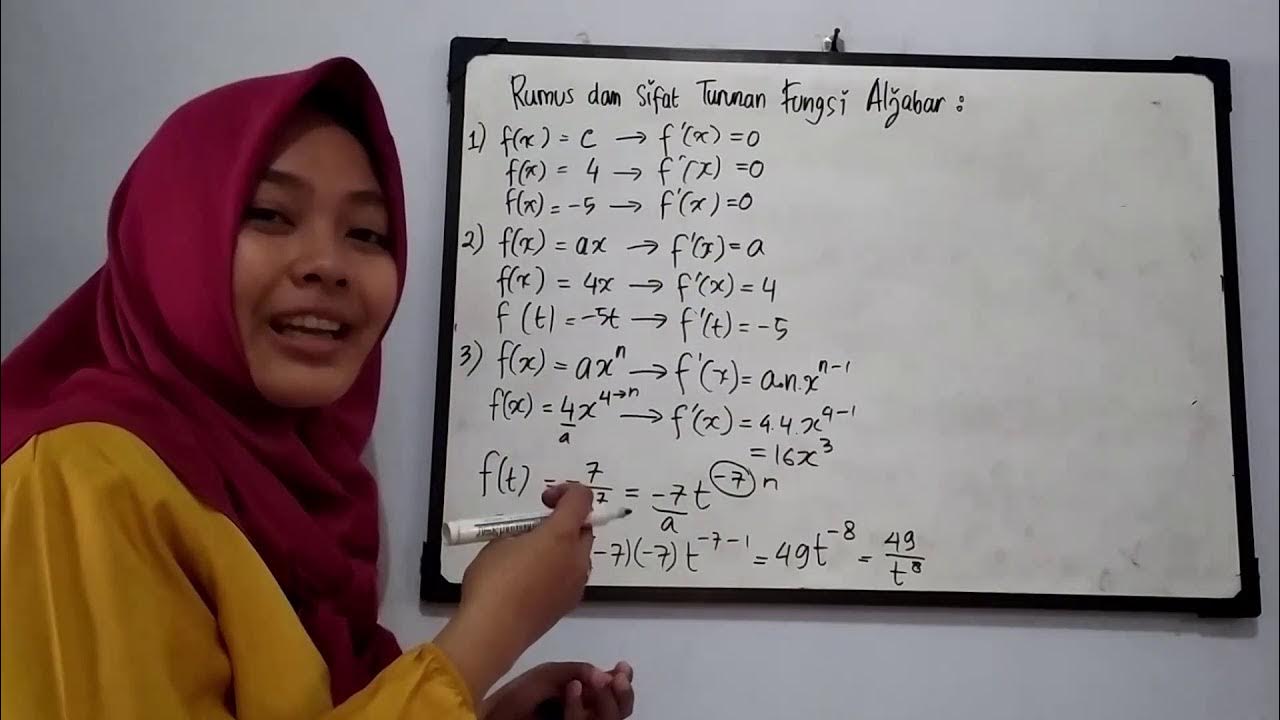 Rumus dan Sifat Turunan Fungsi Aljabar :
1) f(x) = c → f'(x) = 0
f(x) = 4 → f'(x) = 0
f(x) = -5 → f'(x) = 0
2) f(x) = ax → f'(x) = a
f(x) = 4x → f'(x) = 4
f(t) = -5t → f'(t) = -5
3) f(x) = axⁿ → f'(x) = a.n.xⁿ⁻¹
f(x) = 4x⁴→n → f'(x) = 4.4.x⁴⁻¹
a
= 16x³
f(t) = -7/ 7 = -7t⁻⁷ n
a
-7)(-7) t⁻⁷⁻¹ = 49t⁻⁸ = 49/t⁸